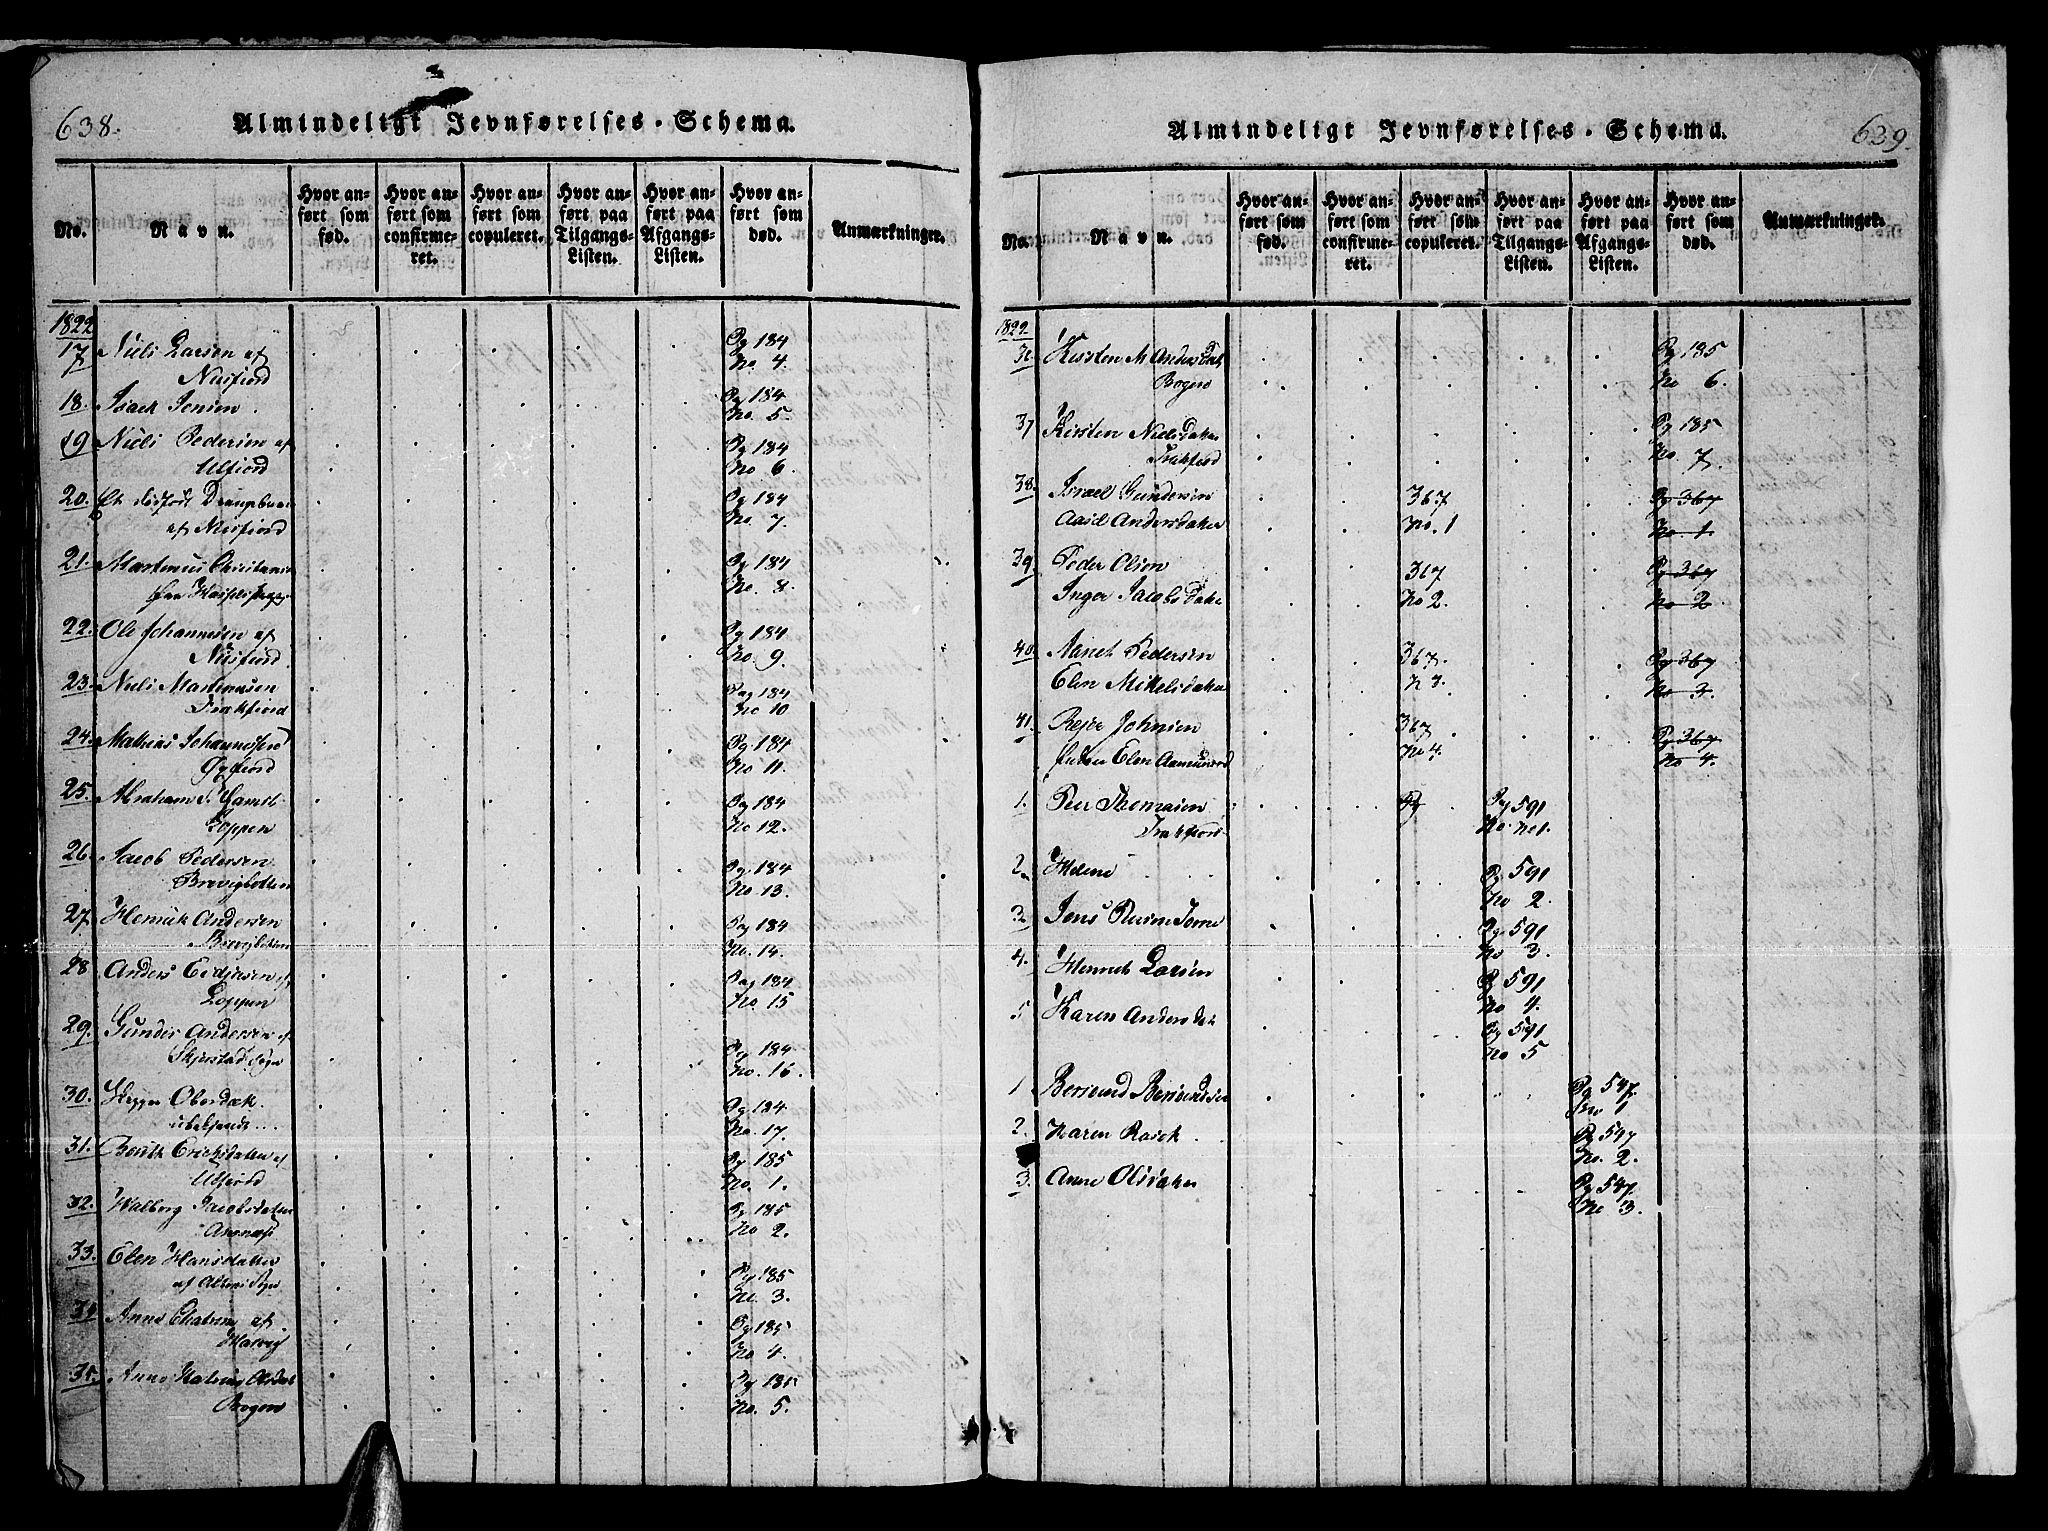 638.
Almindeligt Jevnførelses-Schema.
No.
Navn.
Hvor an-
ført som
fød.
Hvor an-
ført som
confirme-
ret.
Hvor an-
ført som
copuleret.
Hvor an-
ført paa
Tilgangs-
Listen.
Hvor an-
ført paa
Afgangs-
Listen.
Hvor an-
ført som
død.
Anmærkninger.
1822
17 Niels Larsen af Pg 184
Nusfiord No 4.
18. Isach Jensen. Pg 184
No. 5.
19 Niels Pedersen af Pg 184
Ulfiord No 6.
20. Et dødfødt Drengebarn Pg 184
af Nusfiord No. 7.
21. Martinus Christiansen Pg 184
fra No. 8.
22. Ole Johannesen af Pg 184
Nusfiord. No. 9.
23. Niels Martinusen Pag 184
Trækfiord No 10
24. Mathias Johannessen Pg 184
Øyfiord No 11.
25. Abraham Pg 184
Loppen No 12.
26. Jacob Pedersen Pg 184
Brevigbotten No 13.
27 Henrick Andersen Pag 184
Brevigbotten No. 14.
28 Anders af Pag 184
Loppen No 15
29. Gunder Andersen af Pg 184
Skjerstad Sogn No. 16.
30. Olesdak. Pg 184
ubekjendt ... No. 17.
31. Berith Erichsdatter af Pg 185
Ulfiord No. 1.
32. Walborg Jacobsdatter Pg 185
No 2.
33. Elen Hansdatter Pg 185
af Sogn No. 3.
34 Anne af Pg 185
No 4.
35. Anne Pg 185
Bogen No. 5.
639.
Almindeligt Jevnførelses-Schema.
No.
Navn.
Hvor an-
ført som
fød.
Hvor an-
ført som
confirme-
ret.
Hvor an-
ført som
copuleret.
Hvor an-
ført paa
Tilgangs-
Listen.
Hvor an-
ført paa
Afgangs-
Listen.
Hvor an-
ført som
død.
Anmærkninger.
1822.
Kirsten M Andersdat Pg 185
Bogen No 6.
37 Kirsten Nielsdatter Pg 185
Trækfiord No. 7.
38. Israel Gundersen 367 Pg 367
Aasel Andersdatter No. 1 No 1
39. Peder Olsen 367 Pg 367
Inger Jacobsdatter No 2. No 2
40. Pedersen 367. Pg 367
Elen Mikelsdatter N 3. No 3.
41. Johnsen 367 Pg 367
Elen No 4. No 4.
1. Peer Thomasen Pg Pg 591
Trækfiord No. No 1.
2. Helene Pg 591
No 2.
3. Jens Pg 591
No 3.
4. Larsen Pg 591
No 4.
5 Karen Andersdat Pg 591
No 5
1 Bersvend Bersvendsen Pg 547.
No 1
2. Karen Rasch. Pg 547
No. 2.
3. Anne Olsdatter Pg 547.
No 3.